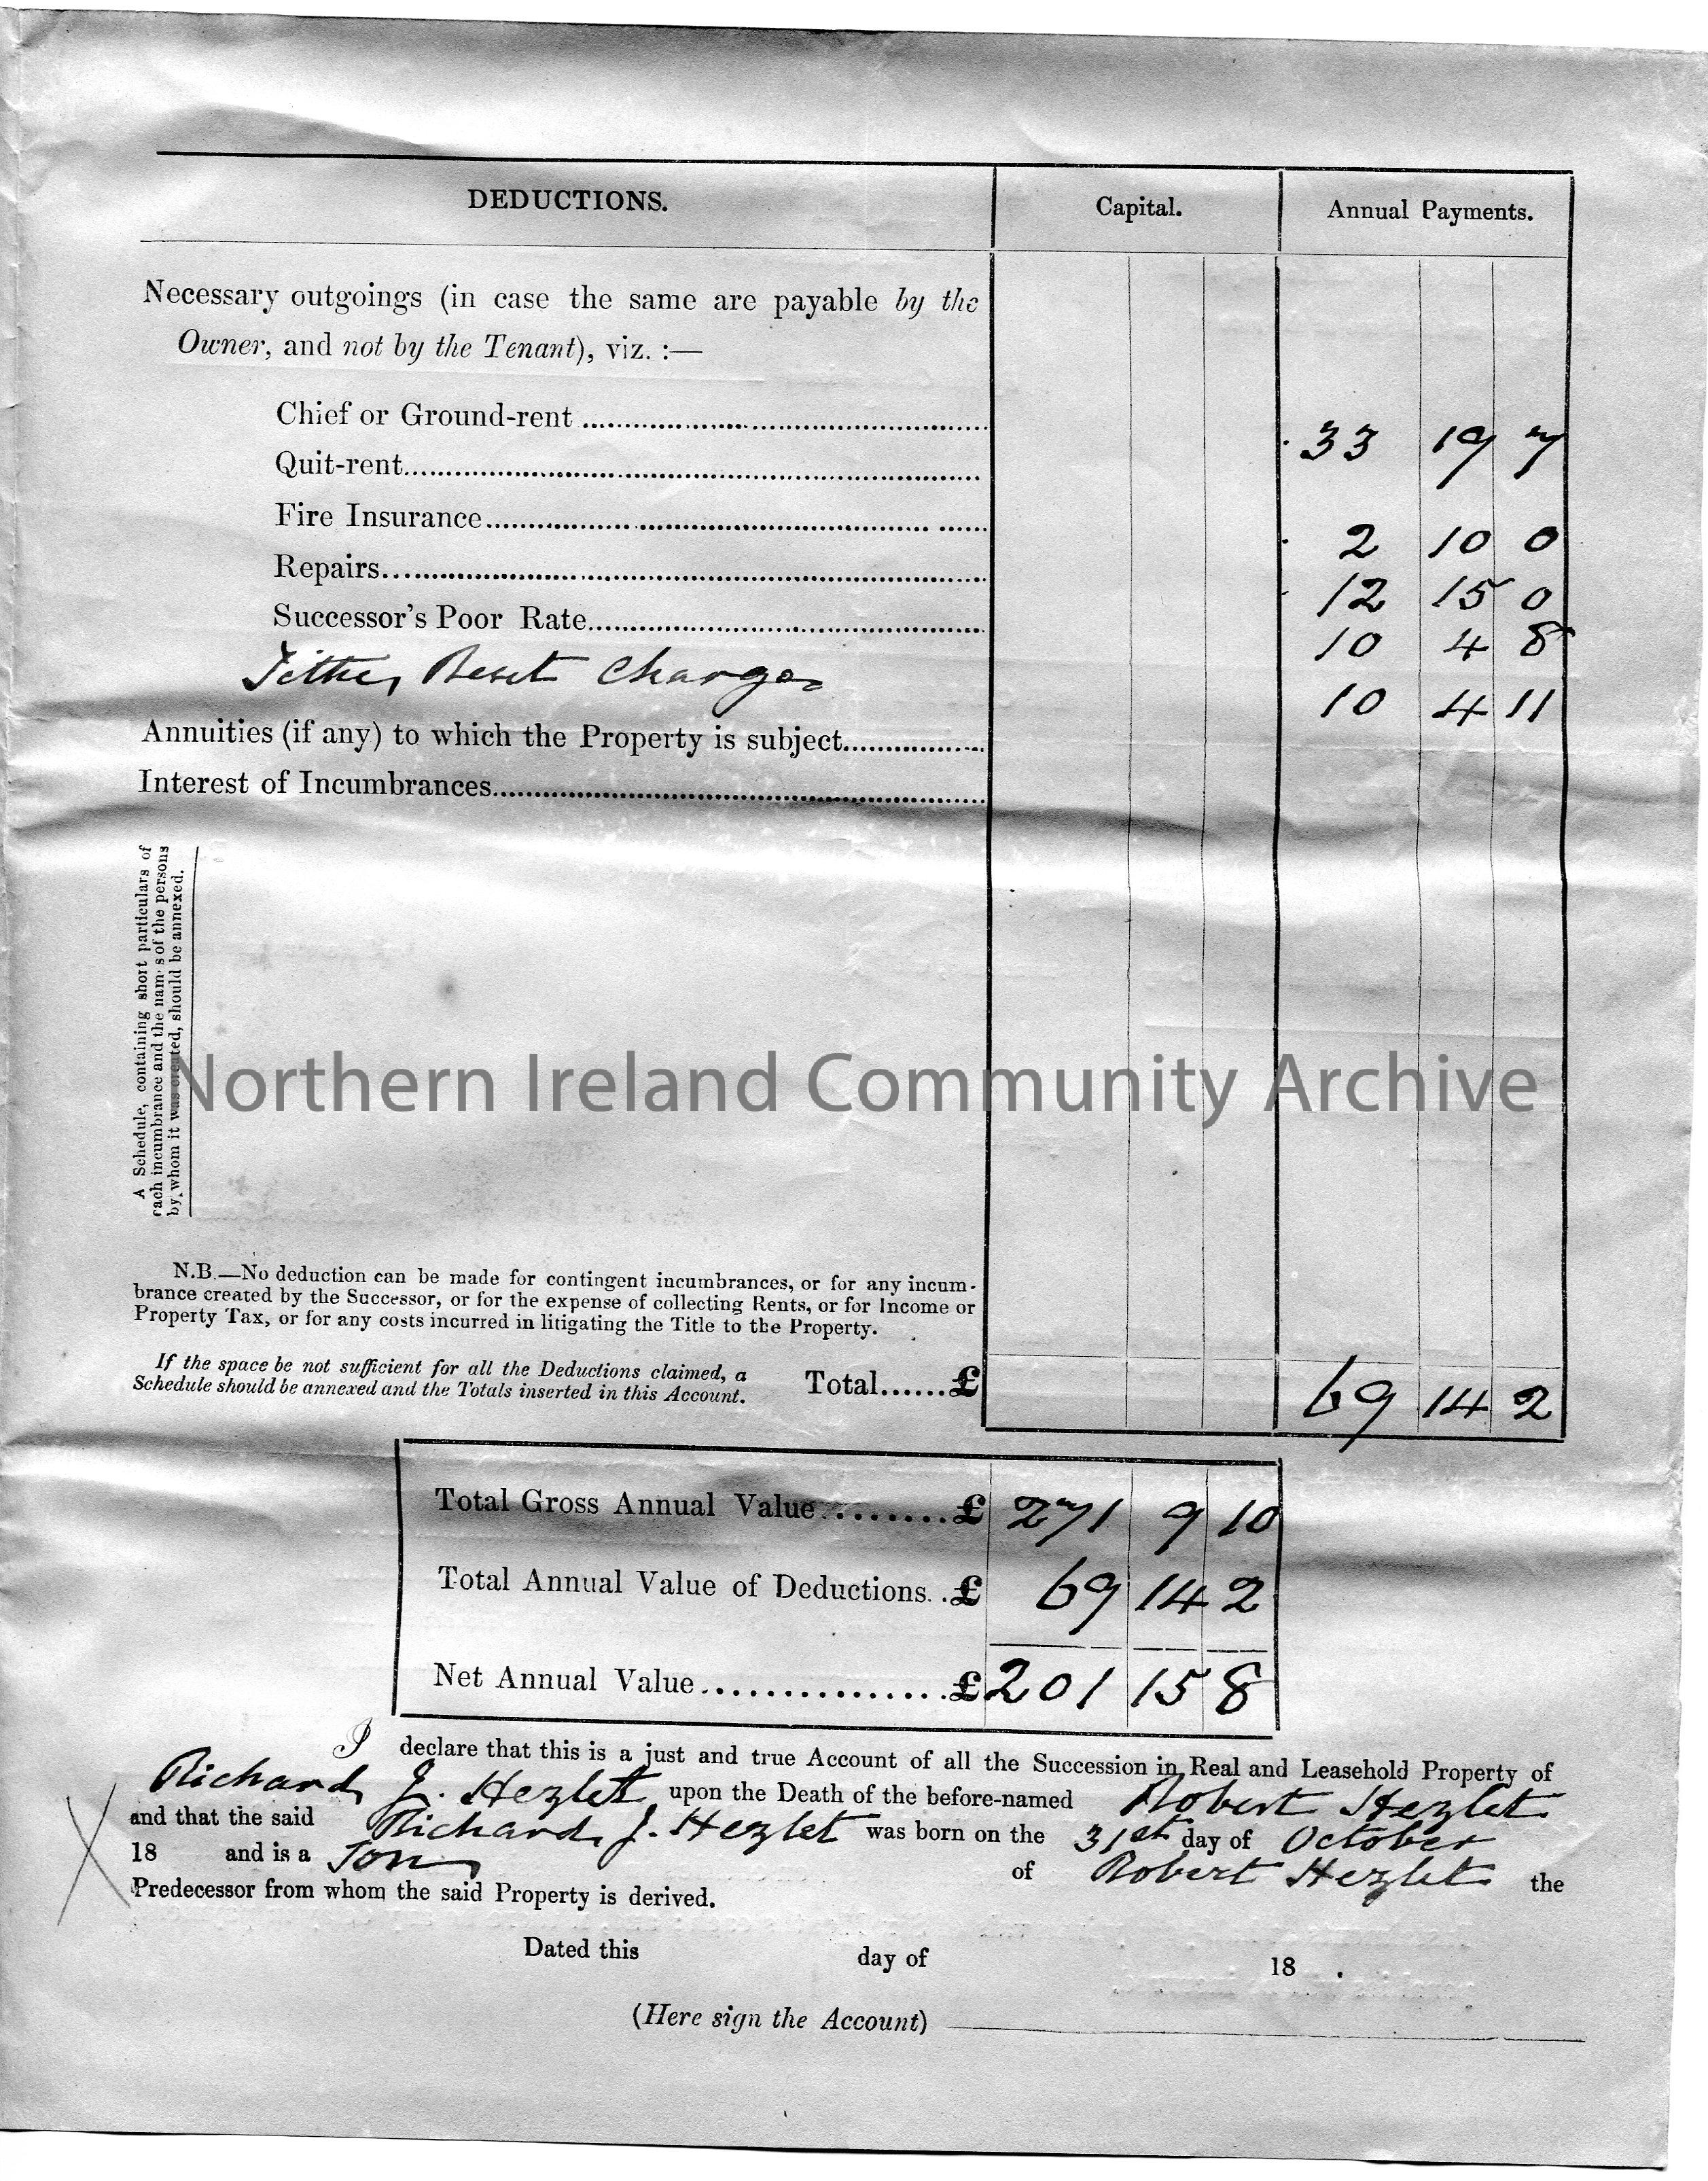 DEDUCTIONS. Capital. Annual Payments.
Necessary outgoings (in case the same are payable by the
Owner, and not by the Tenant), viz. :—
Chief or Ground-rent .......... 33 19 7
Quit-rent..........
Fire Insurance.......... 2 10 0
Repairs.......... 12 15 0
Successor's Poor Rate.......... 10 4 8
Tithe, Rent Charge 10 4 11
Annuities (if any) to which the Property is subject..........
Interest of Incumbrances..........
A Schedule, containing short particulars of
each incumbrance and the names of the persons
by whom it was created, should be annexed.
Northern Ireland Community Archive
N.B.—No deduction can be made for contingent incumbrances, or for any incum-
brance created by the Successor, or for the expense of collecting Rents, or for Income or
Property Tax, or for any costs incurred in litigating the Title to the Property.
If the space be not sufficient for all the Deductions claimed, a
Schedule should be annexed and the Totals inserted in this Account.
Total......£ 69 14 2
Total Gross Annual Value........£ 271 9 10
Total Annual Value of Deductions..£ 69 14 2
Net Annual Value................£ 201 15 8
I declare that this is a just and true Account of all the Succession in Real and Leasehold Property of
Richard J. Hezlet upon the Death of the before-named Robert Hezlet
and that the said Richard J. Hezlet was born on the 31st day of October
18 and is a Son of Robert Hezlet the
Predecessor from whom the said Property is derived.
Dated this day of 18 .
(Here sign the Account)